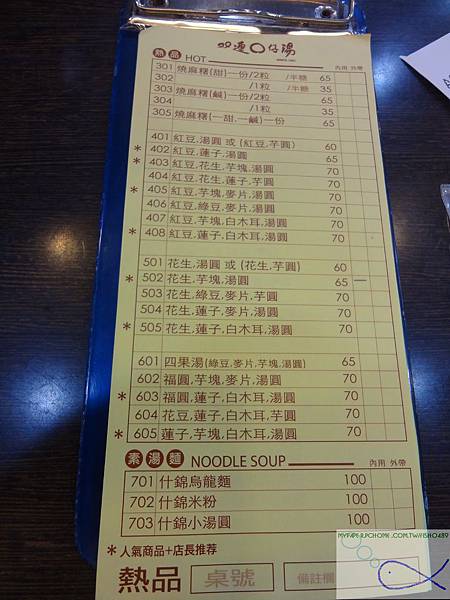 双連〇仔湯
熱品 HOT 內用 外帶
301 燒麻糬(甜)一份/2粒 /半糖 65
302 /1粒 /半糖 35
303 燒麻糬(鹹)一份/2粒 65
304 /1粒 35
305 燒麻糬(一甜.一鹹)一份 65
401 紅豆.湯圓 或 (紅豆.芋圓) 60
* 402 紅豆.蓮子.湯圓 65
* 403 紅豆.花生.芋塊.湯圓 70
404 紅豆.花生.蓮子.芋圓 70
* 405 紅豆.芋塊.麥片.湯圓 70
406 紅豆.綠豆.麥片.湯圓 70
407 紅豆.芋塊.白木耳.湯圓 70
* 408 紅豆.蓮子.白木耳.湯圓 70
501 花生.湯圓 或 (花生.芋圓) 60
* 502 花生.芋塊.湯圓 65
503 花生.綠豆.麥片.芋圓 70
504 花生.蓮子.麥片.湯圓 70
* 505 花生.蓮子.白木耳.湯圓 70
601 四果湯(綠豆.麥片.芋塊.湯圓) 65
602 福圓.芋塊.麥片.湯圓 70
* 603 福圓.蓮子.白木耳.湯圓 70
604 花豆.蓮子.白木耳.芋圓 70
* 605 蓮子.芋塊.白木耳.湯圓 70
素湯麵 NOODLE SOUP 內用 外帶
701 什錦烏龍麵 100
702 什錦米粉 100
703 什錦小湯圓 100
*人氣商品+店長推荐
熱品 桌號 備註欄
MYPAPER.PCHOME.COM.TW/FISH0489